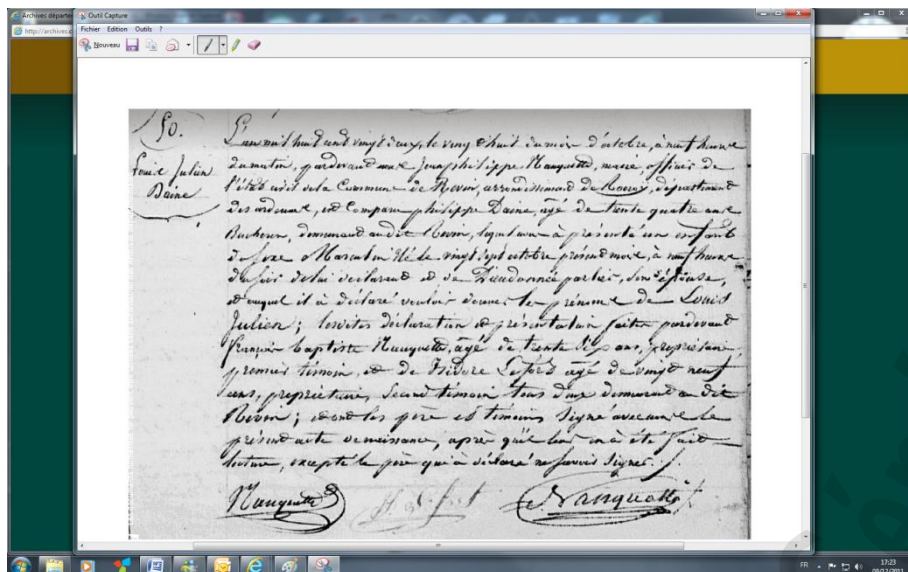 Archives départe
http://archives.c
Outil Capture
Fichier Edition Outils ?
Nouveau
50.
Louis Julien
Daine
L'an mil huit cent vingt deux, le vingt huit du mois d'octobre, à neuf heures
du matin, pardevant nous Jean philippe Mauquette, maire, officier de
l'état civil de la Commune de Revin, arrondissement de Rocroy, département
des ardennes, est Comparu philippe Daine, agé de trente quatre ans
Bucheron, demeurant audit Revin, lequel nous a présenté un enfant
du sexe Masculin né le vingt sept octobre présent mois, à neuf heures
du soir de lui déclarant et de Dieudonnée parlier, son épouse,
et auquel il a déclaré vouloir donner les prénoms de Louis
Julien ; lesdites déclaration et présentation faites pardevant
françois baptiste Mauquette, agé de trente six ans, propriétaire
premier témoin, et de Isidore Lefort agé de vingt neuf
ans, propriétaire, Second témoin tous deux demeurant au dit
Revin ; et ont les père et témoins Signé avec nous le
présent acte de naissance, après qu'il leur en a été fait
lecture, excepté le père qui a déclaré ne savoir signer.
Mauquette
FR
17:23
09/12/2011